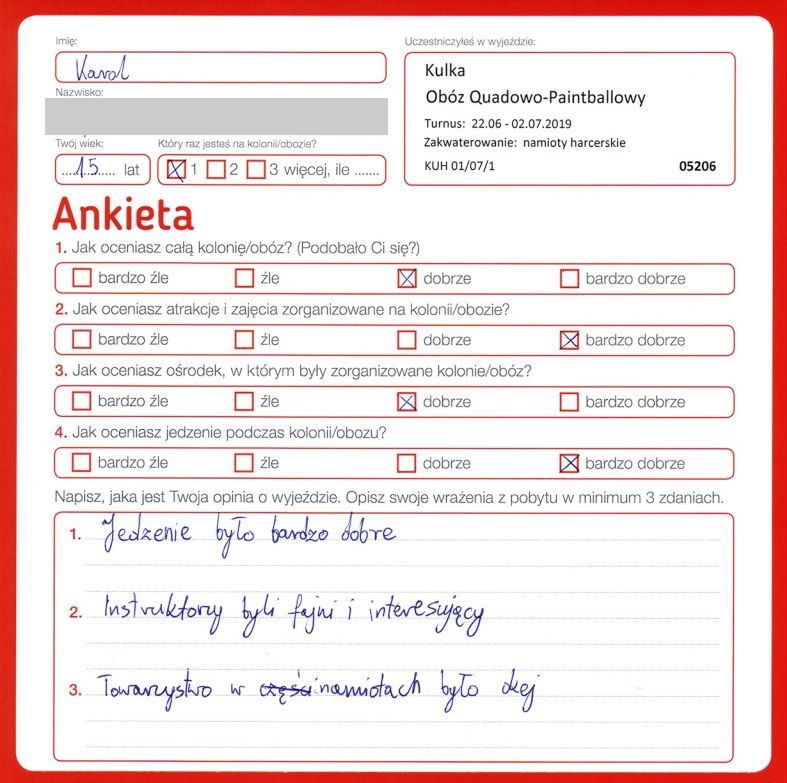 Imię:
Karol
Nazwisko:
Twój wiek:
Który raz jesteś na kolonii/obozie?
....15..... lat
1 2 3 więcej, ile .......
Uczestniczyłeś w wyjeździe:
Kulka
Obóz Quadowo-Paintballowy
Turnus: 22.06 - 02.07.2019
Zakwaterowanie: namioty harcerskie
KUH 01/07/1 05206
Ankieta
1. Jak oceniasz całą kolonię/obóz? (Podobało Ci się?)
bardzo źle źle dobrze bardzo dobrze
2. Jak oceniasz atrakcje i zajęcia zorganizowane na kolonii/obozie?
bardzo źle źle dobrze bardzo dobrze
3. Jak oceniasz ośrodek, w którym były zorganizowane kolonie/obóz?
bardzo źle źle dobrze bardzo dobrze
4. Jak oceniasz jedzenie podczas kolonii/obozu?
bardzo źle źle dobrze bardzo dobrze
Napisz, jaka jest Twoja opinia o wyjeździe. Opisz swoje wrażenia z pobytu w minimum 3 zdaniach.
1. Jedzenie było bardzo dobre
2. Instruktorzy byli fajni i interesujący
3. Towarzystwo w części namiotach było okej